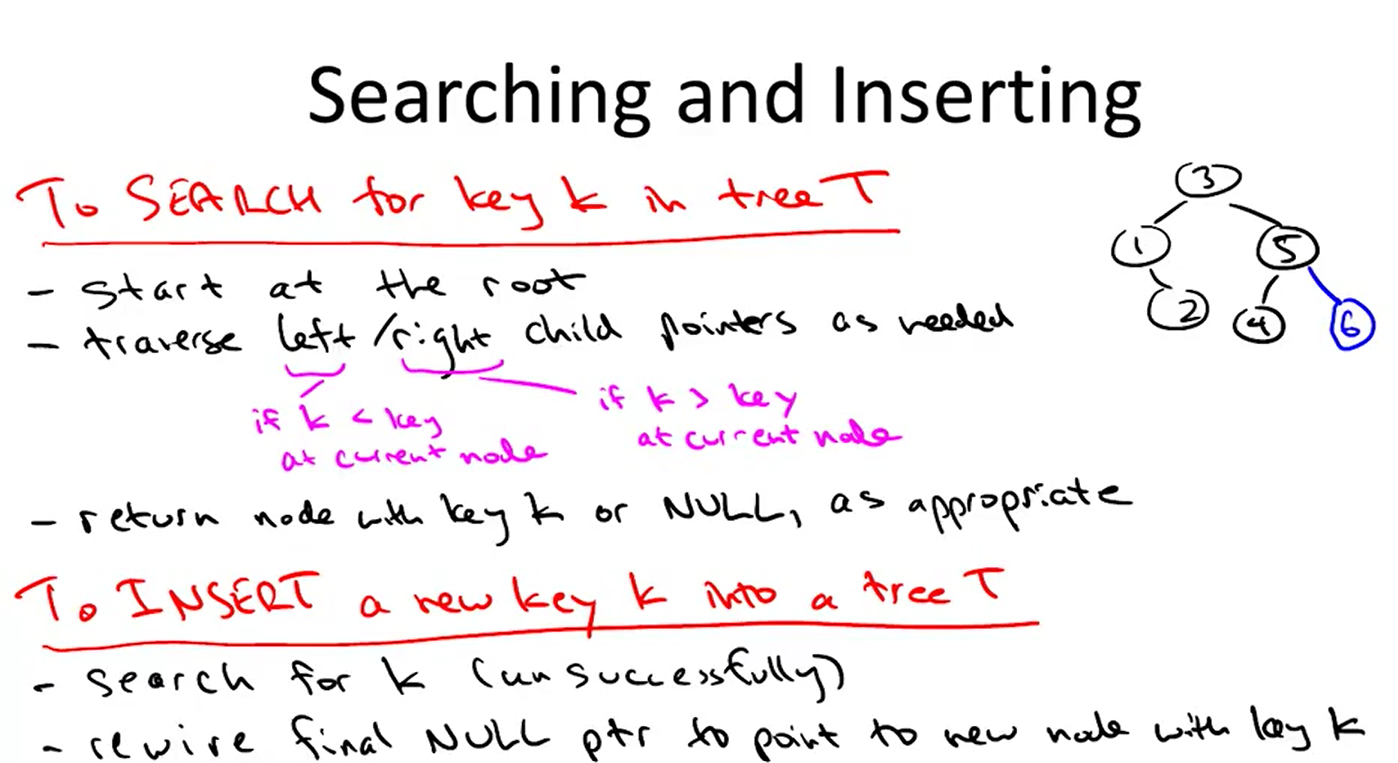 Searching and Inserting
To SEARCH for key k in tree T
- start at the root
- traverse left/right child pointers as needed
if k < key
at current node
if k > key
at current node
- return node with key k or NULL, as appropriate
To INSERT a new key k into a tree T
- search for k (unsuccessfully)
- rewire final NULL ptr to point to new node with key k
3
1 5
2 4 6